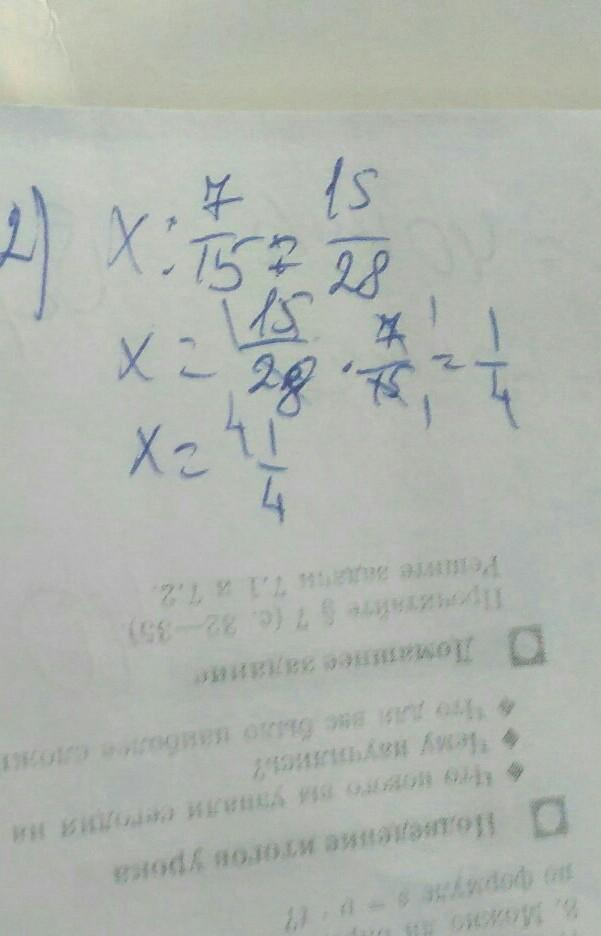 2) x : 7/15 = 15/28
x = 15/28 · 7/15 = 1/4
1 4 1 1
x = 1/4
Решите задачи 7.1 и 7.2.
Прочитайте § 7 (с. 32—35).
Домашнее задание
Что для вас было наиболее
Чему научились?
Что нового вы узнали сегодня на
Подведение итогов урока
по формуле s =
8. Можно ли